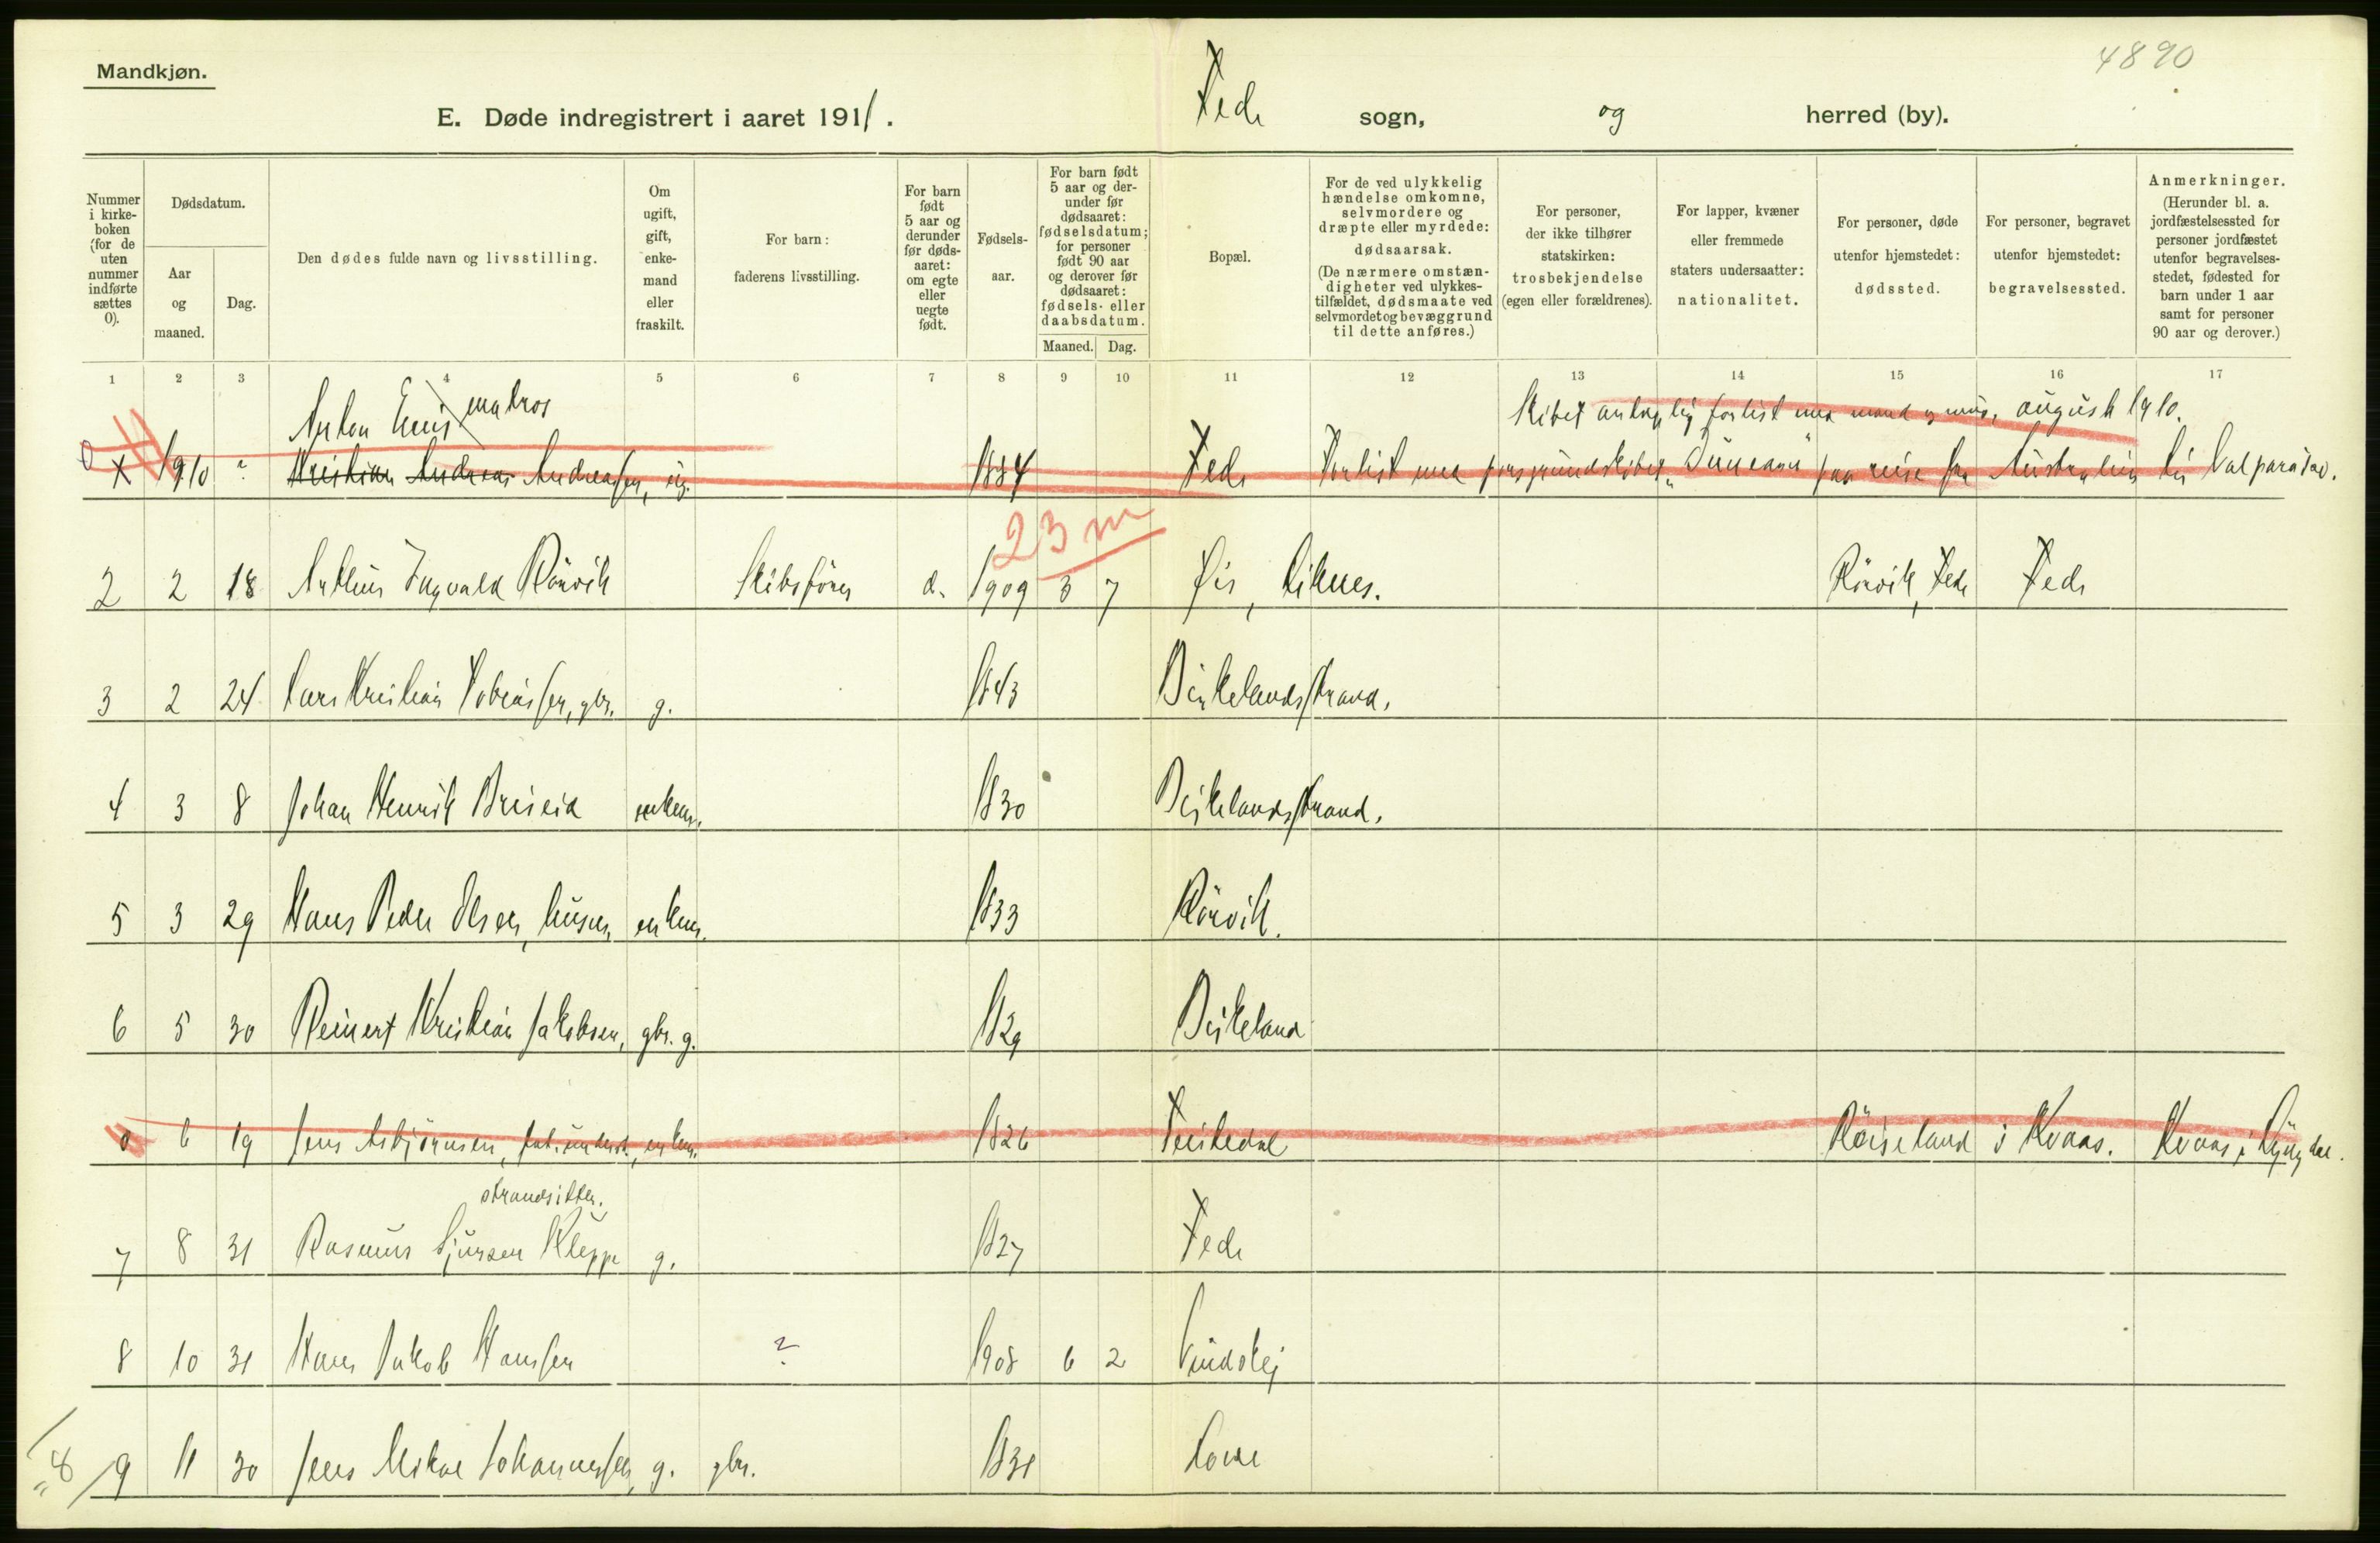 4890
Mandkjøn.
E. Døde indregistrert i aaret 1911. Feda sogn, og herred (by).
Nummer i kirkeboken (for de uten nummer indførte sættes 0).
Dødsdatum.
Aar og maaned.
Dag.
Den dødes fulde navn og livsstilling.
Om ugift, gift, enkemand eller fraskilt.
For barn: faderens livsstilling.
For barn født 5 aar og derunder før dødsaaret: om egte eller uegte født.
Fødselsaar.
For barn født 5 aar og derunder før dødsaaret: fødselsdatum; for personer født 90 aar og derover før dødsaaret: fødsels- eller daabsdatum.
Maaned. Dag.
Bopæl.
For de ved ulykkelig hændelse omkomne, selvmordere og dræpte eller myrdede: dødsaarsak. (De nærmere omstændigheter ved ulykkestilfældet, dødsmaate ved selvmordet og bevæggrund til dette anføres.)
For personer, der ikke tilhører statskirken: trosbekjendelse (egen eller forældrenes).
For lapper, kvæner eller fremmede staters undersaatter: nationalitet.
For personer, døde utenfor hjemstedet: dødssted.
For personer, begravet utenfor hjemstedet: begravelsessted.
Anmerkninger. (Herunder bl. a. jordfæstelsessted for personer jordfæstet utenfor begravelsesstedet, fødested for barn under 1 aar samt for personer 90 aar og derover.)
1 2 3 4 5 6 7 8 9 10 11 12 13 14 15 16 17
Anton Emil matros Skibet antagelig forlist med mand og mus, august 1910.
0 1910 ? Kristian Andreas Andreassen, ug. 1884 Feda Forlist med porsgrundskibet "Duncann" paa reise fra Australien til Valparaiso.
23 m
2 2 18 Arthur Ingvald Rörvik Skibsförer 1909 3 7 Öie, Liknes. Rörvik, Feda Feda
3 2 24 Lars Kristian Tobiassen, gbr. g. 1843 Birkelandsstrand.
4 3 8 Johan Henrik Briseid enkem. 1830 Birkelandsstrand.
5 3 29 Hans Peder Olsen, husm. enkem. 1833 Rörvik.
6 5 30 Reinert Kristian Jakobsen, gbr. g. 1829 Birkeland
0 6 19 Jens Asbjörnsen, fat. underst., enkem. 1826 Feiskedal Röiseland i Kvaas. Kvaas i Lyngdal.
strandsitter.
7 8 31 Rasmus Sjursen Kleppe g. 1827 Feda
8 10 31 Hans Jakob Hanssen ? 1908 6 2 Vindskej
9 11 30 Jens Mikal Johannessen, g. gbr. 1831
8